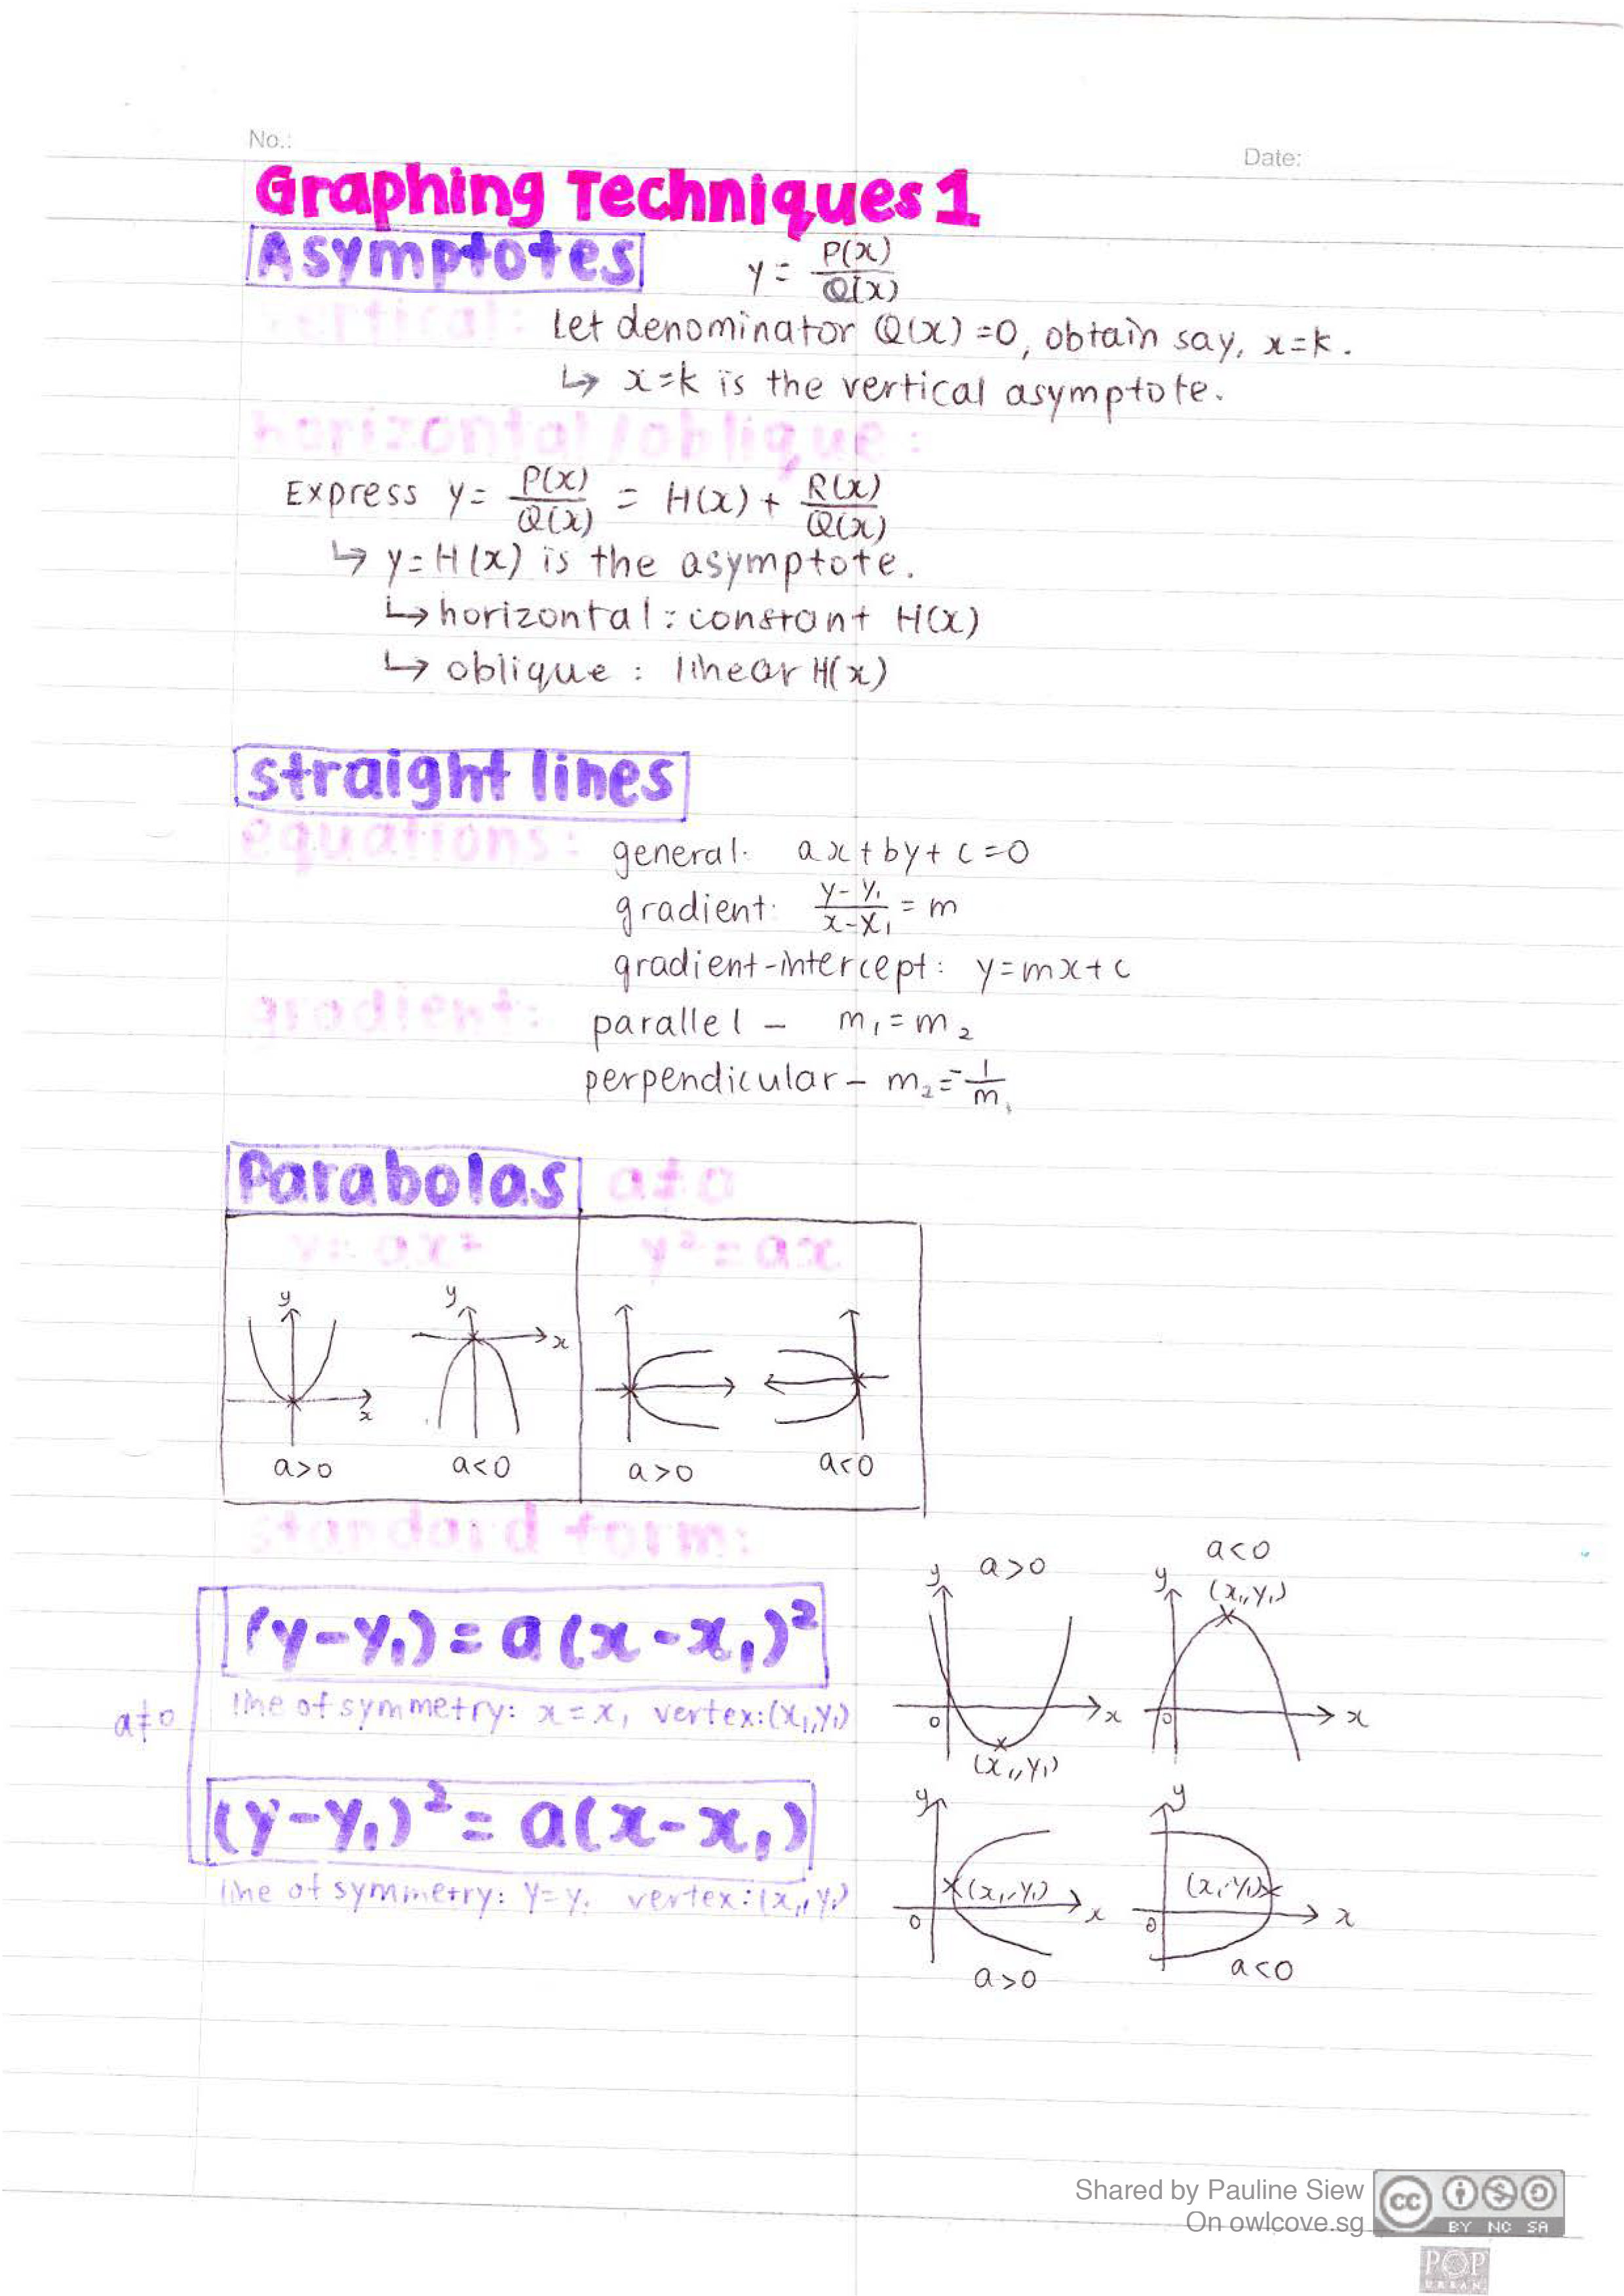 No.:
Date:
Graphing Techniques 1
Asymptotes
y = P(x)/Q(x)
vertical:
Let denominator Q(x) = 0, obtain say, x=k.
↳ x=k is the vertical asymptote.
horizontal/oblique:
Express y = P(x)/Q(x) = H(x) + R(x)/Q(x)
↳ y=H(x) is the asymptote.
↳ horizontal: constant H(x)
↳ oblique: linear H(x)
straight lines
equations:
general: ax+by+c=0
gradient: (y-y₁)/(x-x₁) = m
gradient-intercept: y=mx+c
gradient:
parallel - m₁=m₂
perpendicular - m₂=-1/m₁
Parabolas a≠0
y=ax² y²=ax
y y
x x
a>0 a<0 a>0 a<0
standard form:
(y-y₁)=a(x-x₁)²
line of symmetry: x=x₁ vertex:(x₁,y₁)
a≠0
(y-y₁)²=a(x-x₁)
line of symmetry: y=y₁ vertex:(x₁,y₁)
y a>0
0 x
(x₁,y₁)
a<0
y (x₁,y₁)
0 x
y
(x₁,y₁)
0 x
a>0
y
(x₁,y₁)
0 x
a<0
Shared by Pauline Siew
On owlcove.sg
cc
BY NC SA
POP
URBAN